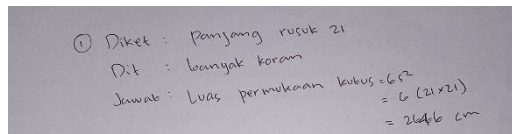 ① Diket : Panjang rusuk 21
Dit : banyak koran
Jawab : Luas permukaan kubus = 6s²
= 6 (21 × 21)
= 2646 cm